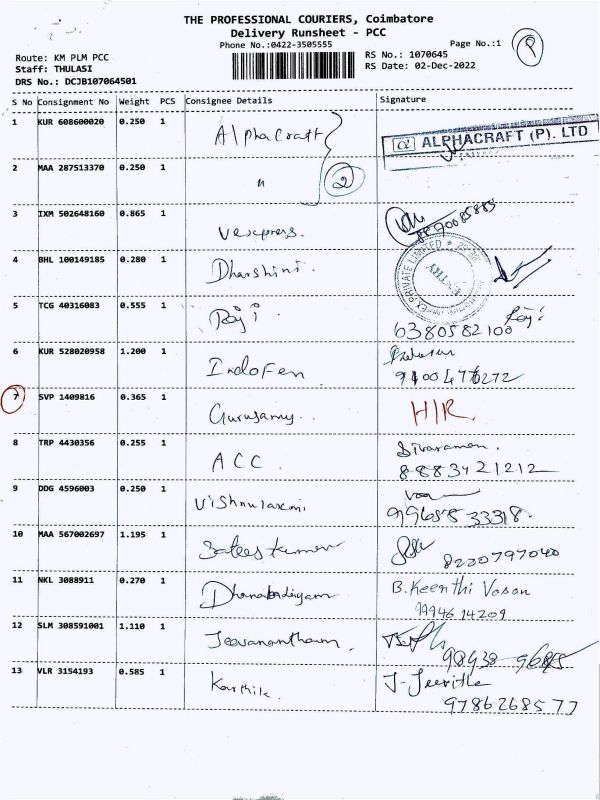 THE PROFESSIONAL COURIERS, Coimbatore
Delivery Runsheet - PCC
Phone No.:0422-3505555
Page No.:1
Route: KM PLM PCC
RS No.: 1070645
Staff: THULASI
RS Date: 02-Dec-2022
DRS No.: DCJB107064501
S No Consignment No Weight PCS Consignee Details Signature
1 KUR 608600020 0.250 1 Alphacraft
ALPHACRAFT (P). LTD
2 MAA 287513370 0.250 1 " 2
3 IXM 502648160 0.865 1 Vexpress.
4 BHL 100149185 0.280 1 Dharshini.
5 TCG 40316083 0.555 1 Raji. Raji
6380582100
6 KUR 528020958 1.200 1 IndoFen
7 SVP 1409816 0.365 1 Gurusamy.. H/R.
8 TRP 4430356 0.255 1 ACC. Sivaraman.
8883421212
9 DDG 4596003 0.250 1 Vishnulaxmi
9965833318.
10 MAA 567002697 1.195 1 Sateeskumar
8220797040
11 NKL 3088911 0.270 1 B.Keerthi Vasan
9994614209
12 SLM 308591001 1.110 1 Jeevanantham.
13 VLR 3154193 0.585 1 Karthik. J-Jeevitha
9786268577